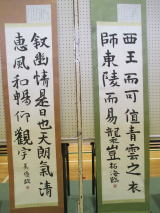 西王而可值青雲之衣
師東陵而易襲豈
叙幽情是日也天朗氣清
惠風和暢仰觀宇